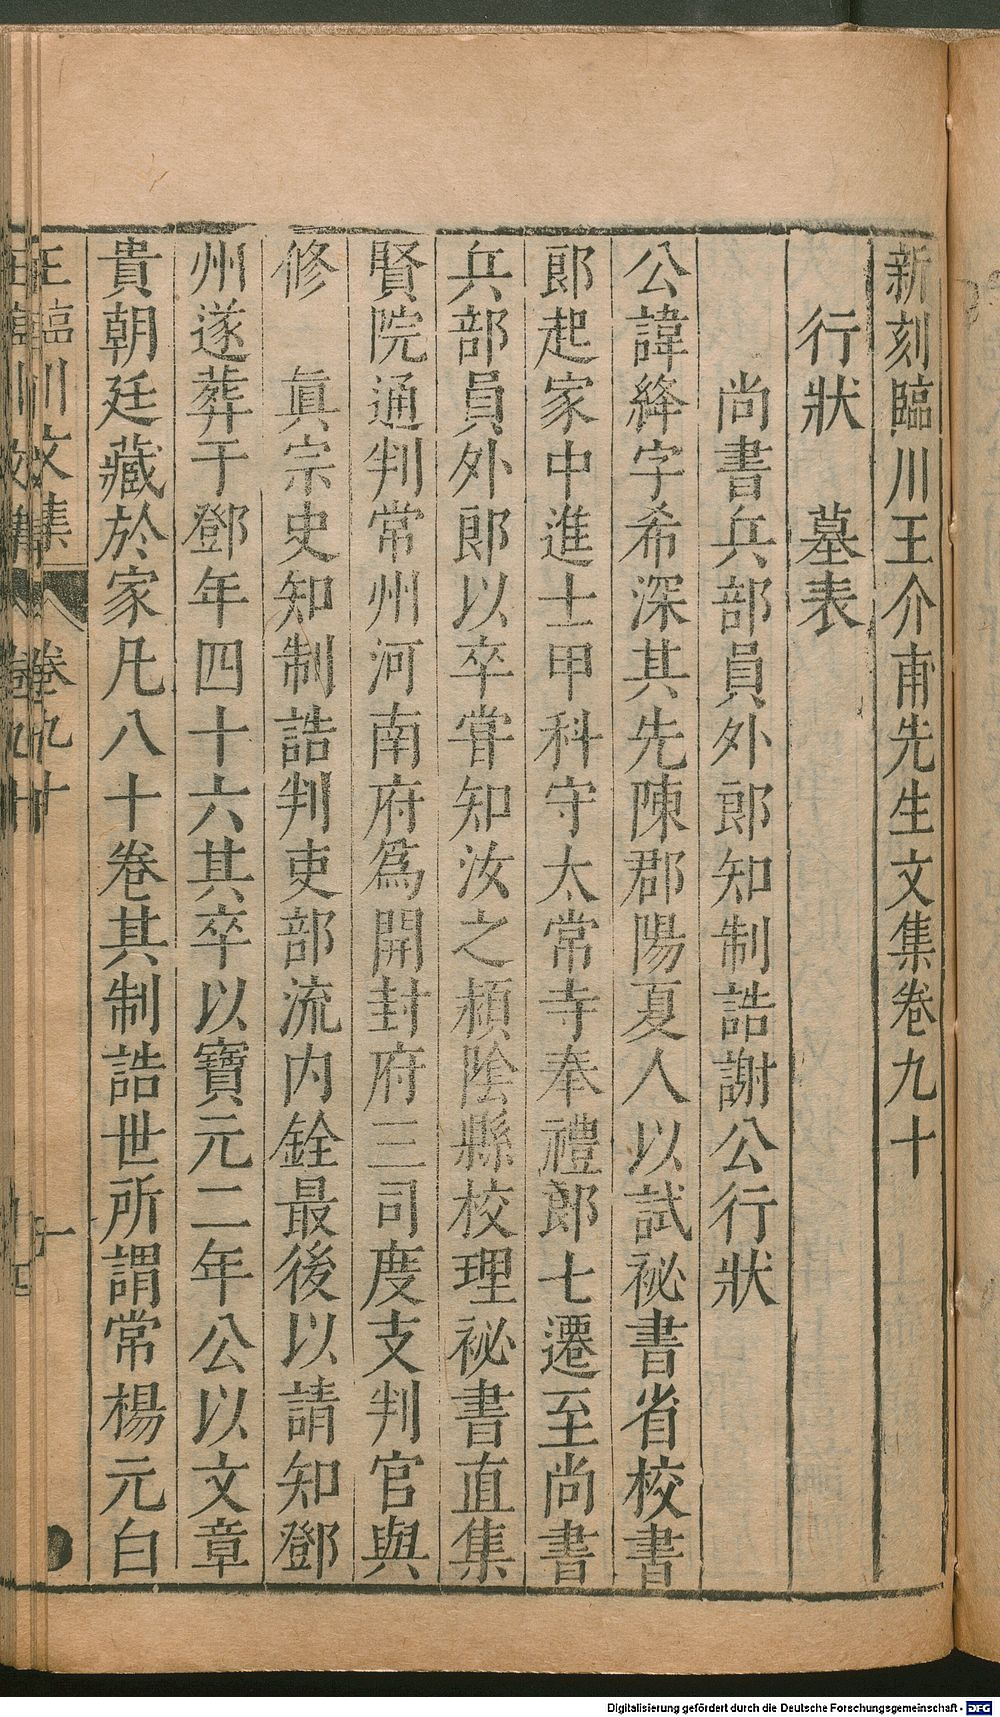 新刻臨川王介甫先生文集卷九十
行狀　墓表
尚書兵部員外郎知制誥謝公行狀
公諱絳字希深其先陳郡陽夏人以試祕書省校書
郎起家中進士甲科守太常寺奉禮郎七遷至尚書
兵部員外郎以卒嘗知汝之潁陰縣校理祕書直集
賢院通判常州河南府爲開封府三司度支判官與
修　眞宗史知制誥判吏部流内銓最後以請知鄧
州遂葬于鄧年四十六其卒以寶元二年公以文章
貴朝廷藏於家凡八十卷其制誥世所謂常楊元白
王臨川文集　卷九十　一
Digitalisierung gefördert durch die Deutsche Forschungsgemeinschaft - DFG